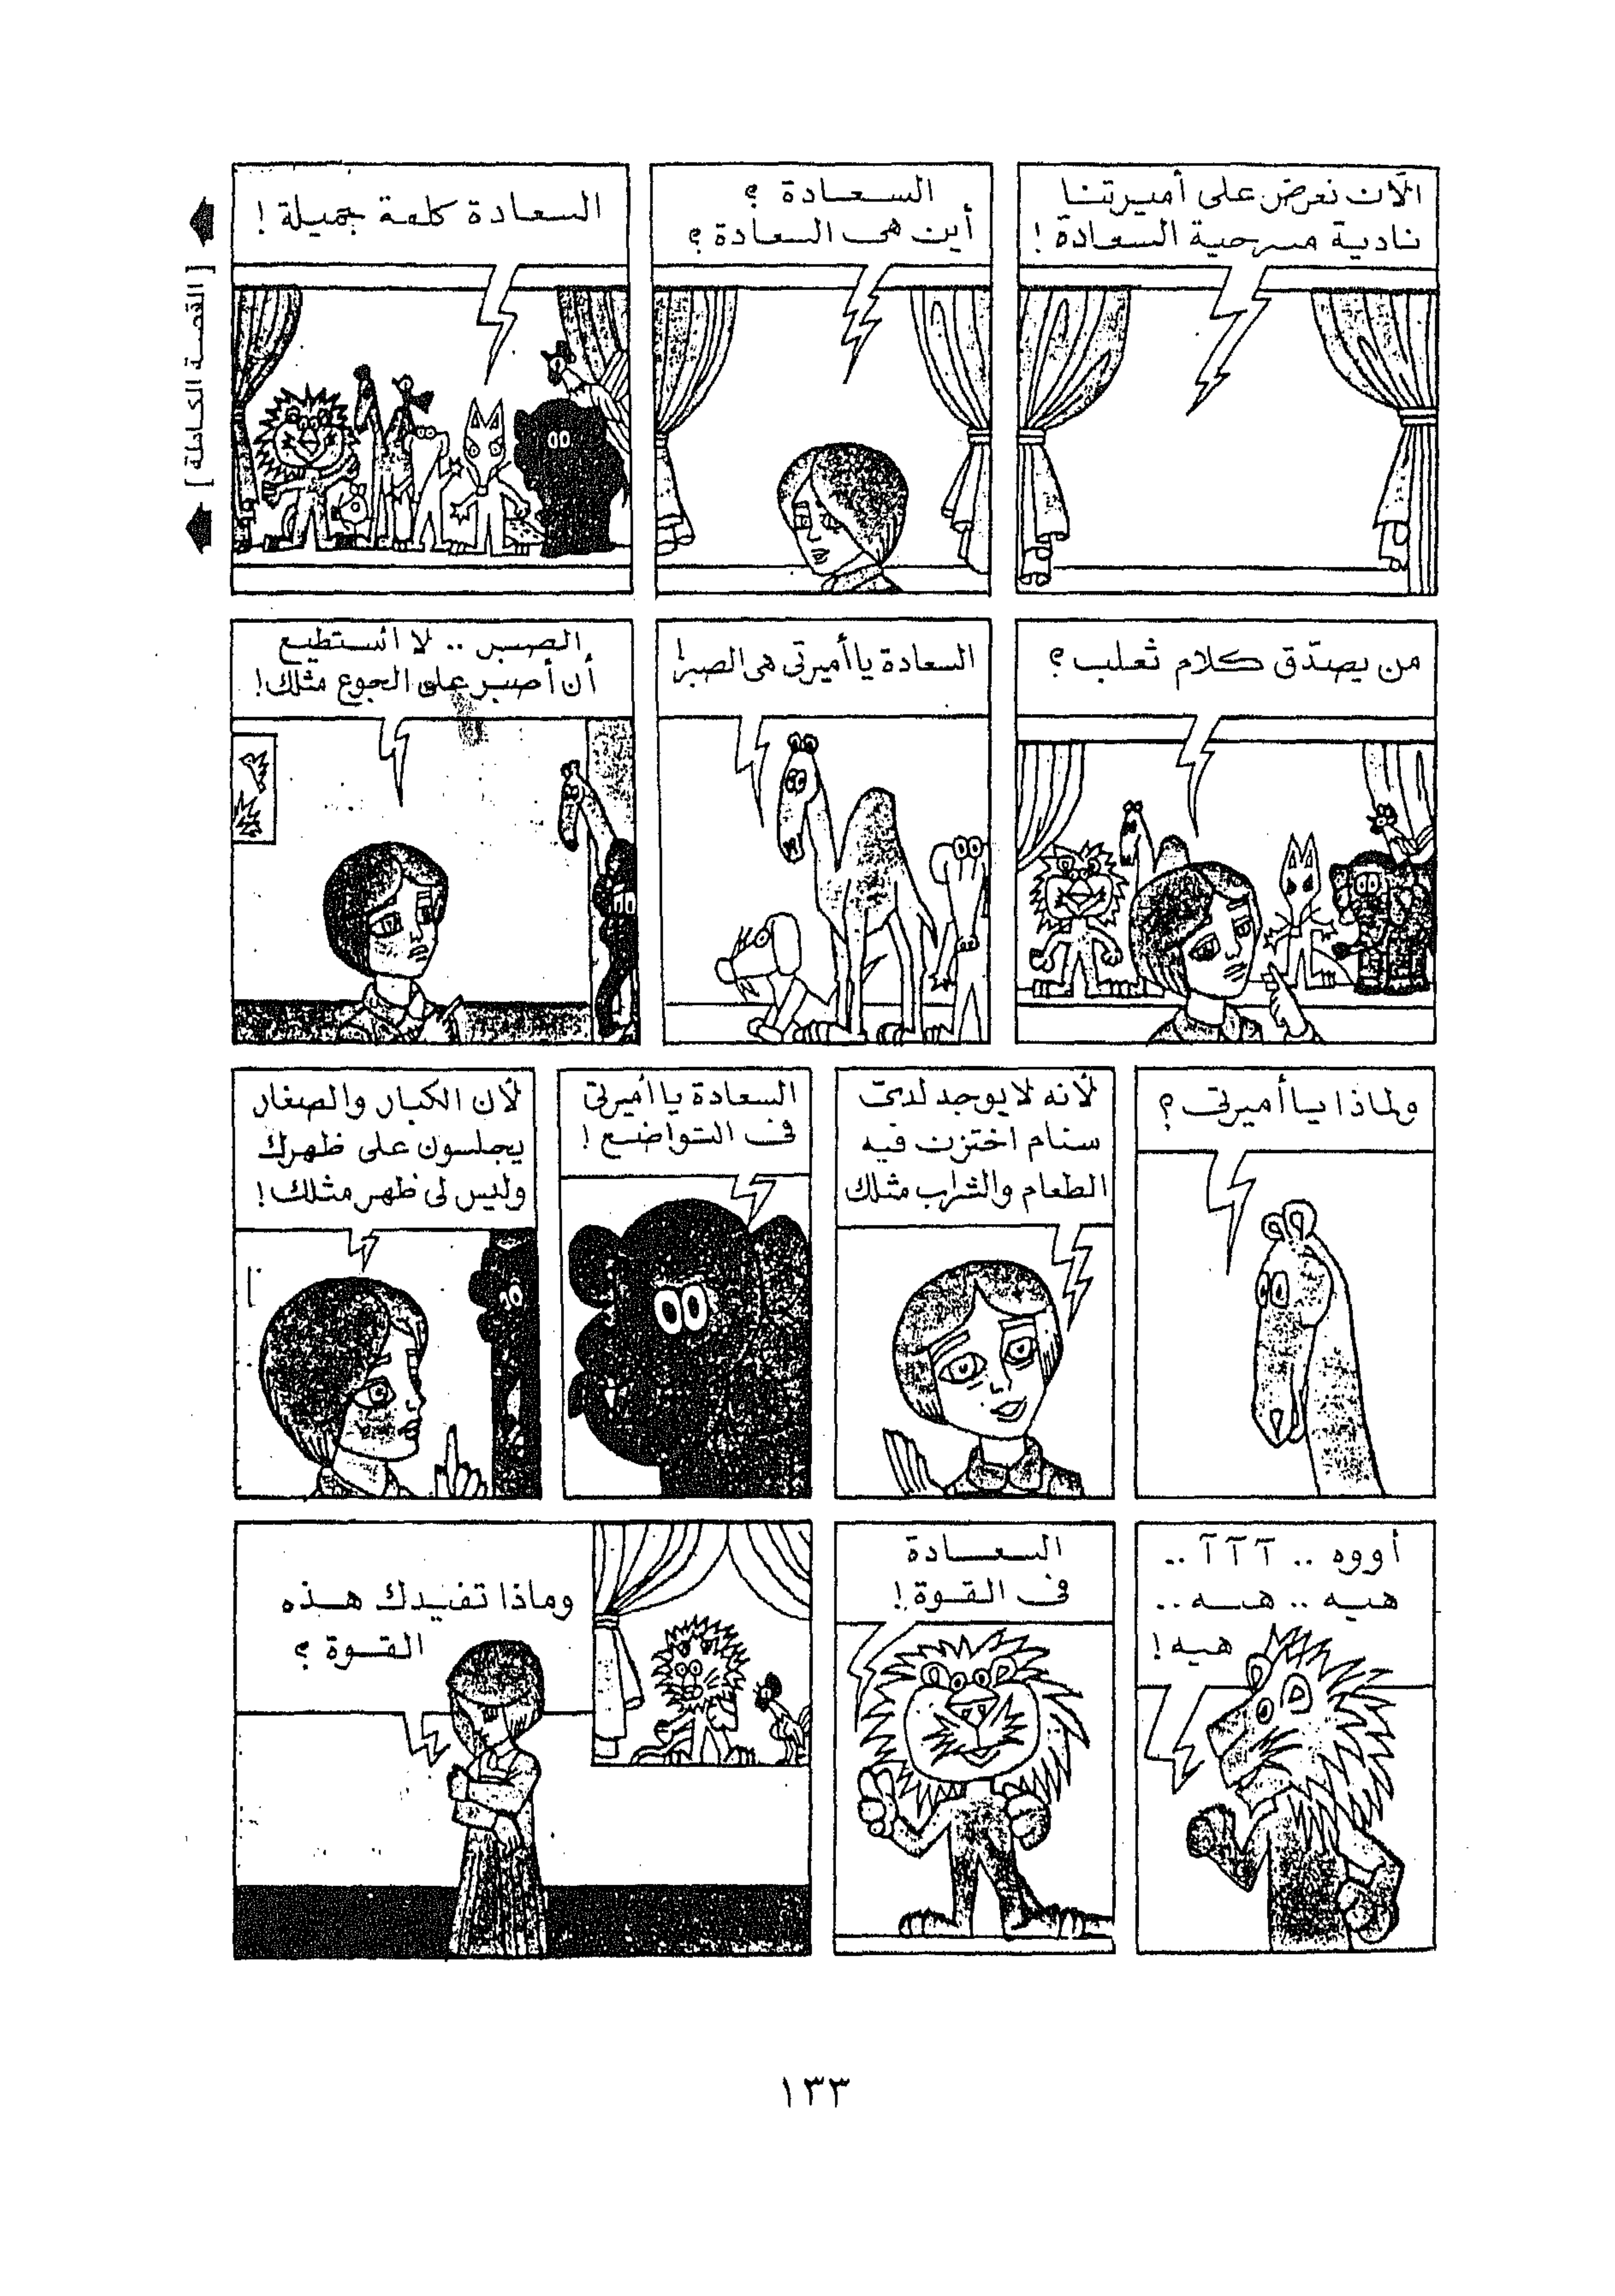 الآن نعرض على أميرتنا
نادية مسرحية السعادة!
السعادة ؟
أين هى السعادة ؟
السعادة كلمة جميلة !
[ القصة الكاملة ]
من يصدّق كلام ثعلب ؟
السعادة يا أميرتى هى الصبر!
الصبر .. لا أستطيع
أن أصبر على الجوع مثلك!
ولماذا يا أميرتى ؟
لأنه لا يوجد لدىّ
سنام اختزن فيه
الطعام والشراب مثلك
السعادة يا أميرتى
فى التواضع !
لأن الكبار والصغار
يجلسون على ظهرك
وليس لى ظهر مثلك !
أووه .. آ آ آ ..
هيه .. هـه ..
هيه !
السعادة
فى القوة !
وماذا تفيدك هذه
القوة ؟
١٣٣